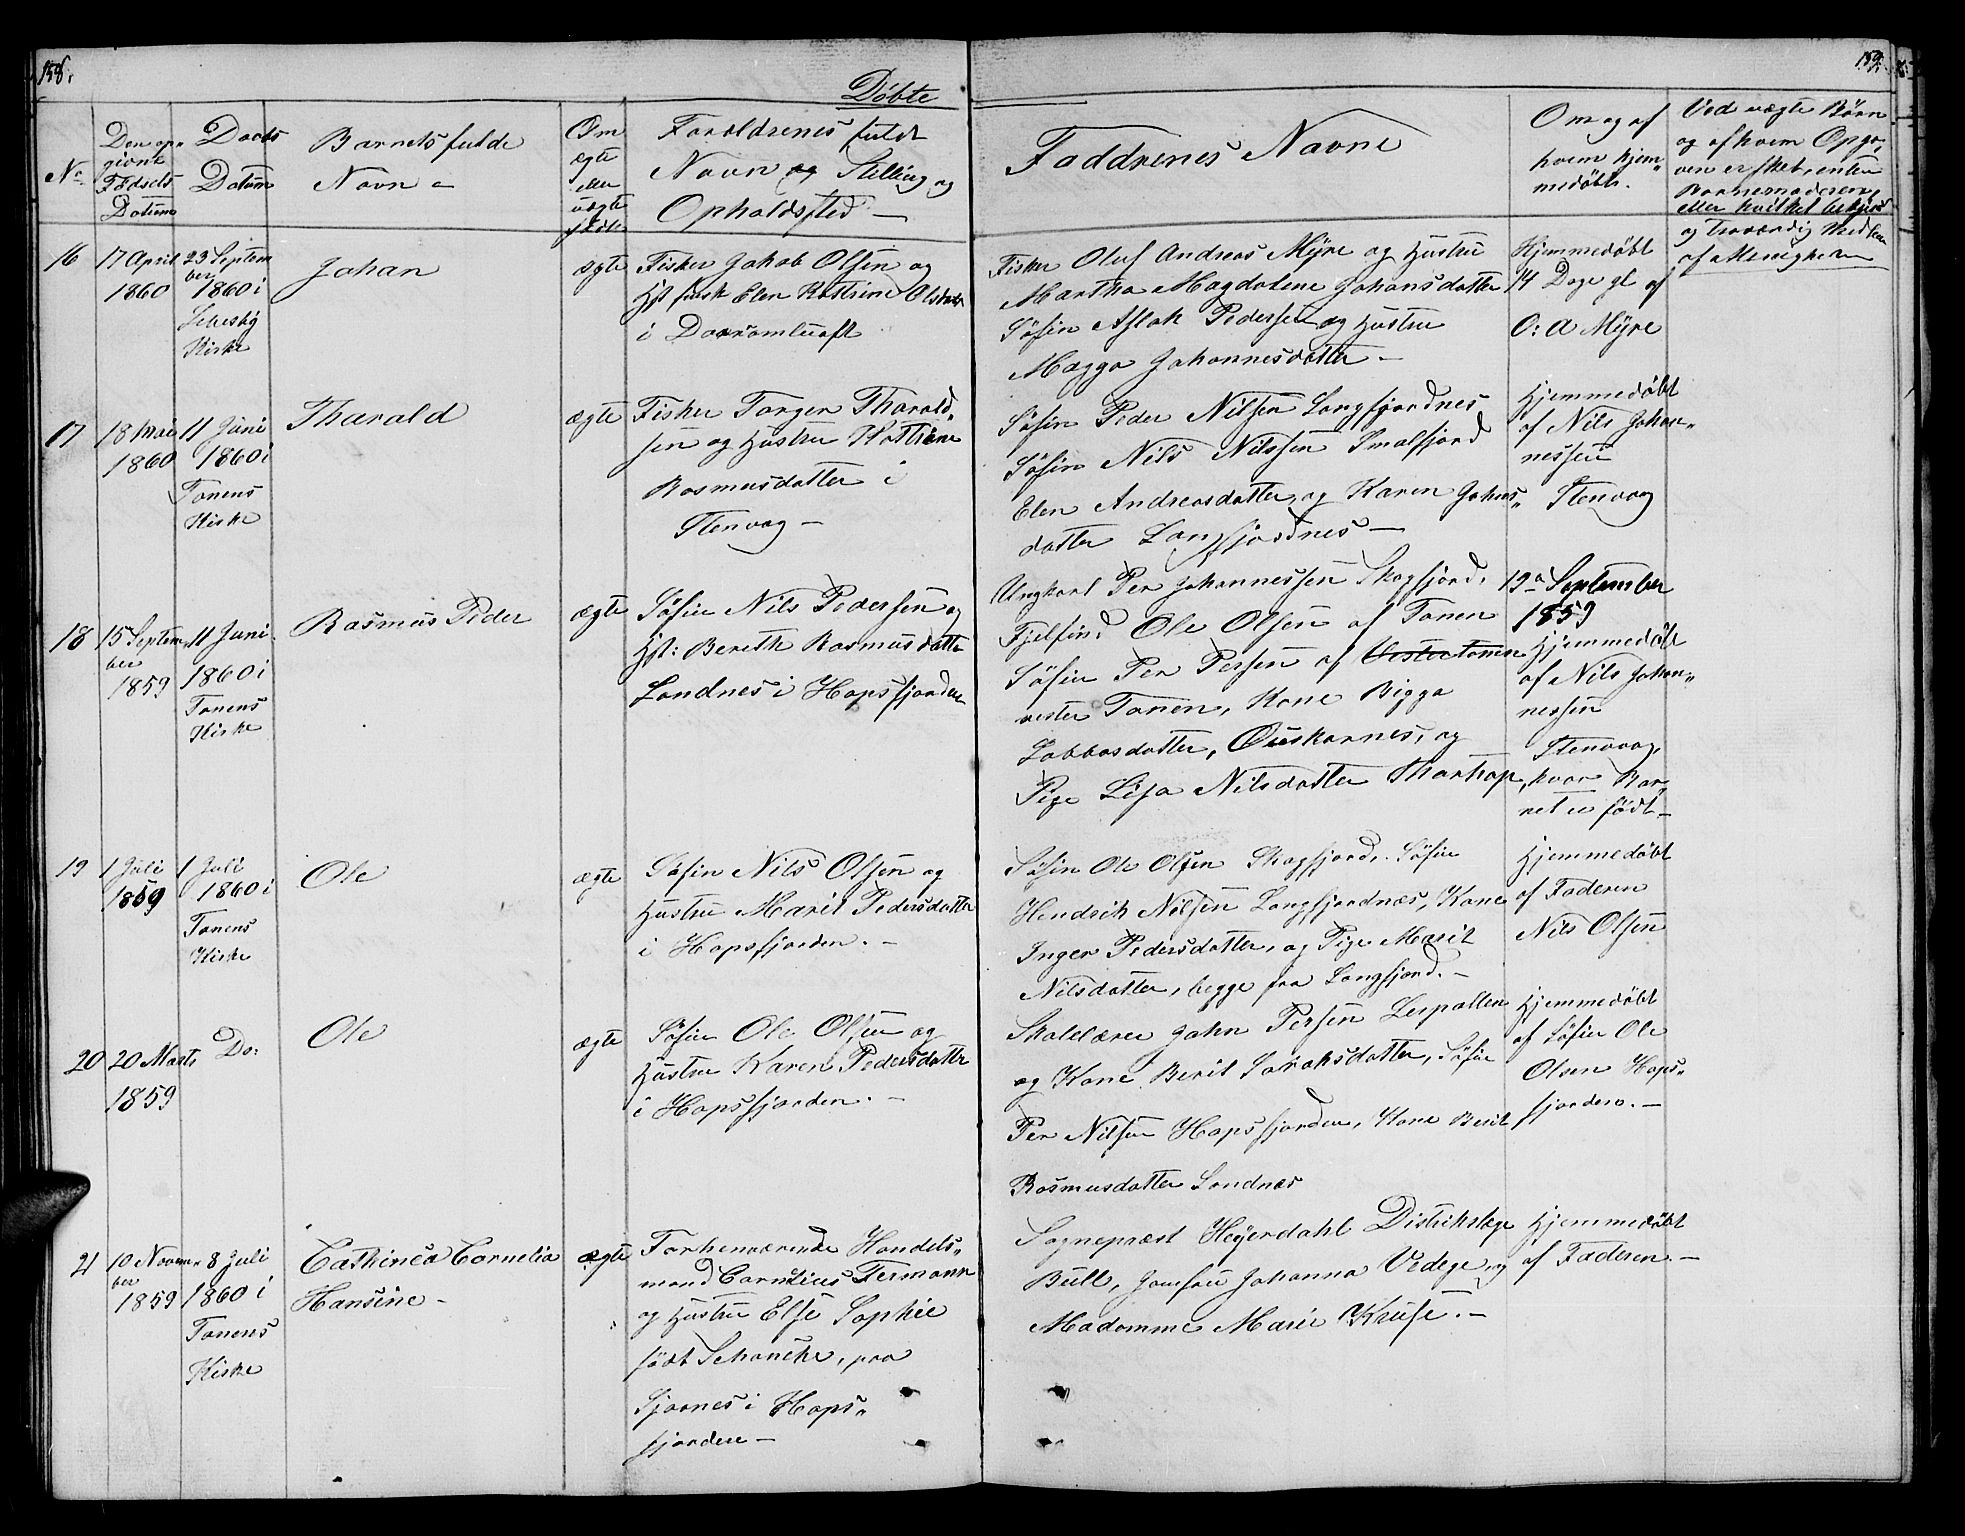 158.
159.
Döbte
No
Den op-
givne
Fødsels
Datum
Daabs
Datum
Barnets fulde
Navn
Om
ægte
eller
uægte
født
Foreldrenes fulde
Navn og Stilling og
Opholdsted
Faddrenes Navne
Om og af
hvem hjem-
medöbt.
Ved uægte Børn
og af hvem Opga-
ven er skeet, enten
Barnemoderen
eller hvilket bekjent
og troværdig Medlem
af Menigheden
16
17 April
1860
23 Septem
ber
1860 i
Lebesby
Kirke
Johan
ægte
Fisker Jakob Olsen og
Hst født Elen Kattrine Olsdatter
i
Fisker Oluf Andreas Myre og Hustru
Martha Magdalene Johansdatter
Søfin Aslak Pedersen og Hustru
Magga Johannesdatter
Hjemmedöbt
14 Dage gl af
O: A Myre
17
18 Mai
1860
11 Juni
1860 i
Tanens
Kirke
Tharald
ægte
Fisker Torger Tharald-
sen og Hustru Kattrine
Rasmusdatter i
Stenvag
Søfin Peder Nilsen Langfjordnes
Søfin Nils Nilssen Smalfjord
Elen Andreasdatter, og Karen Johns-
datter Langfjordnes
Hjemmedöbt
af Nils Johan-
nessen
Stenvag
18
15 Septem-
ber
1859
11 Juni
1860 i
Tanens
Kirke
Rasmus Peder
ægte
Søfin Nils Pedersen og
Hst: Bereth Rasmusdatter
Landnes i Hopsfjorden
Ungkarl Per Johannessen Skogfjord,
Fjelfind Ole Olsen af Tanen
Søfin Per Persen af Vestertanen
vester Tanen, Kone Bigga
Labbasdatter, Guskarnes, og
Pige Lisa Nilsdatter Tharhop
19a September
1859
Hjemmedöbt
af Nils Johan-
nessen
Stenvag,
hvor Bar-
net er født
19
1 Juli
1859
1 Juli
1860 i
Tanens
Kirke
Ole
ægte
Søfin Nils Olsen og
Hustru Marit Pedersdatter
i Hopsfjorden.
Søfin Ole Olsen Skogfjord, Søfin
Hendrik Nilsen Langfjordnæs, Kone
Inger Pedersdatter, og Pige Marit
Nilsdatter, begge fra Langfjord.
Hjemmedöbt
af Faderen
Nils Olsen
20
20 Marts
1859
Do:
Ole
ægte
Søfin Ole Olsen og
Hustru Karen Pedersdatter
i Hopsfjorden.
Skolelærer John Persen Leipollen
og Kone Berit Sarahsdatter, Søfin
Per Nilsen Hopsfjorden, Kone Berit
Rasmusdatter Landnæs
Hjemmedöbt
af Søfin Ole
Olsen Hops-
fjorden.
21
10 Novem-
ber
1859
8 Juli
1860 i
Tanens
Kirke
Cathinca Cornelia
Hansine
ægte
Forhenværende Handels-
mand Cornelius Fermann
og Hustru Else Sophie
født Schancke, paa
Sjaanes i Hops-
fjorden
Sognepræst Heyerdahl Distrikslæge
Bull, Jomfru Johanna Vedege, og
Madamme Marie Kruse.
Hjemmedöbt
af Faderen.